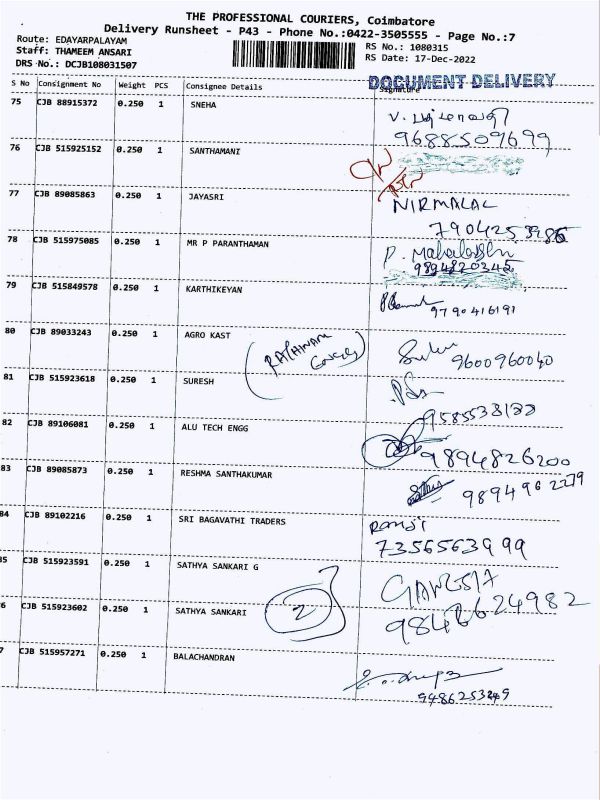 THE PROFESSIONAL COURIERS, Coimbatore
Delivery Runsheet - P43 - Phone No.:0422-3505555 - Page No.:7
Route: EDAYARPALAYAM
RS No.: 1080315
Staff: THAMEEM ANSARI
RS Date: 17-Dec-2022
DRS No.: DCJB108031507
DOCUMENT DELIVERY
S No Consignment No Weight PCS Consignee Details Signature
75 CJB 88915372 0.250 1 SNEHA
9688509699
76 CJB 515925152 0.250 1 SANTHAMANI
77 CJB 89085863 0.250 1 JAYASRI
NIRMALAL
78 CJB 515975085 0.250 1 MR P PARANTHAMAN
9894820345
79 CJB 515849578 0.250 1 KARTHIKEYAN
9790416191
80 CJB 89033243 0.250 1 AGRO KAST
RATHINAM
9600960040
81 CJB 515923618 0.250 1 SURESH
82 CJB 89106081 0.250 1 ALU TECH ENGG
9894826200
83 CJB 89085873 0.250 1 RESHMA SANTHAKUMAR
84 CJB 89102216 0.250 1 SRI BAGAVATHI TRADERS
Ramji
7356563999
85 CJB 515923591 0.250 1 SATHYA SANKARI G
GANESH
6 CJB 515923602 0.250 1 SATHYA SANKARI
2
9846624982
7 CJB 515957271 0.250 1 BALACHANDRAN
9486253249